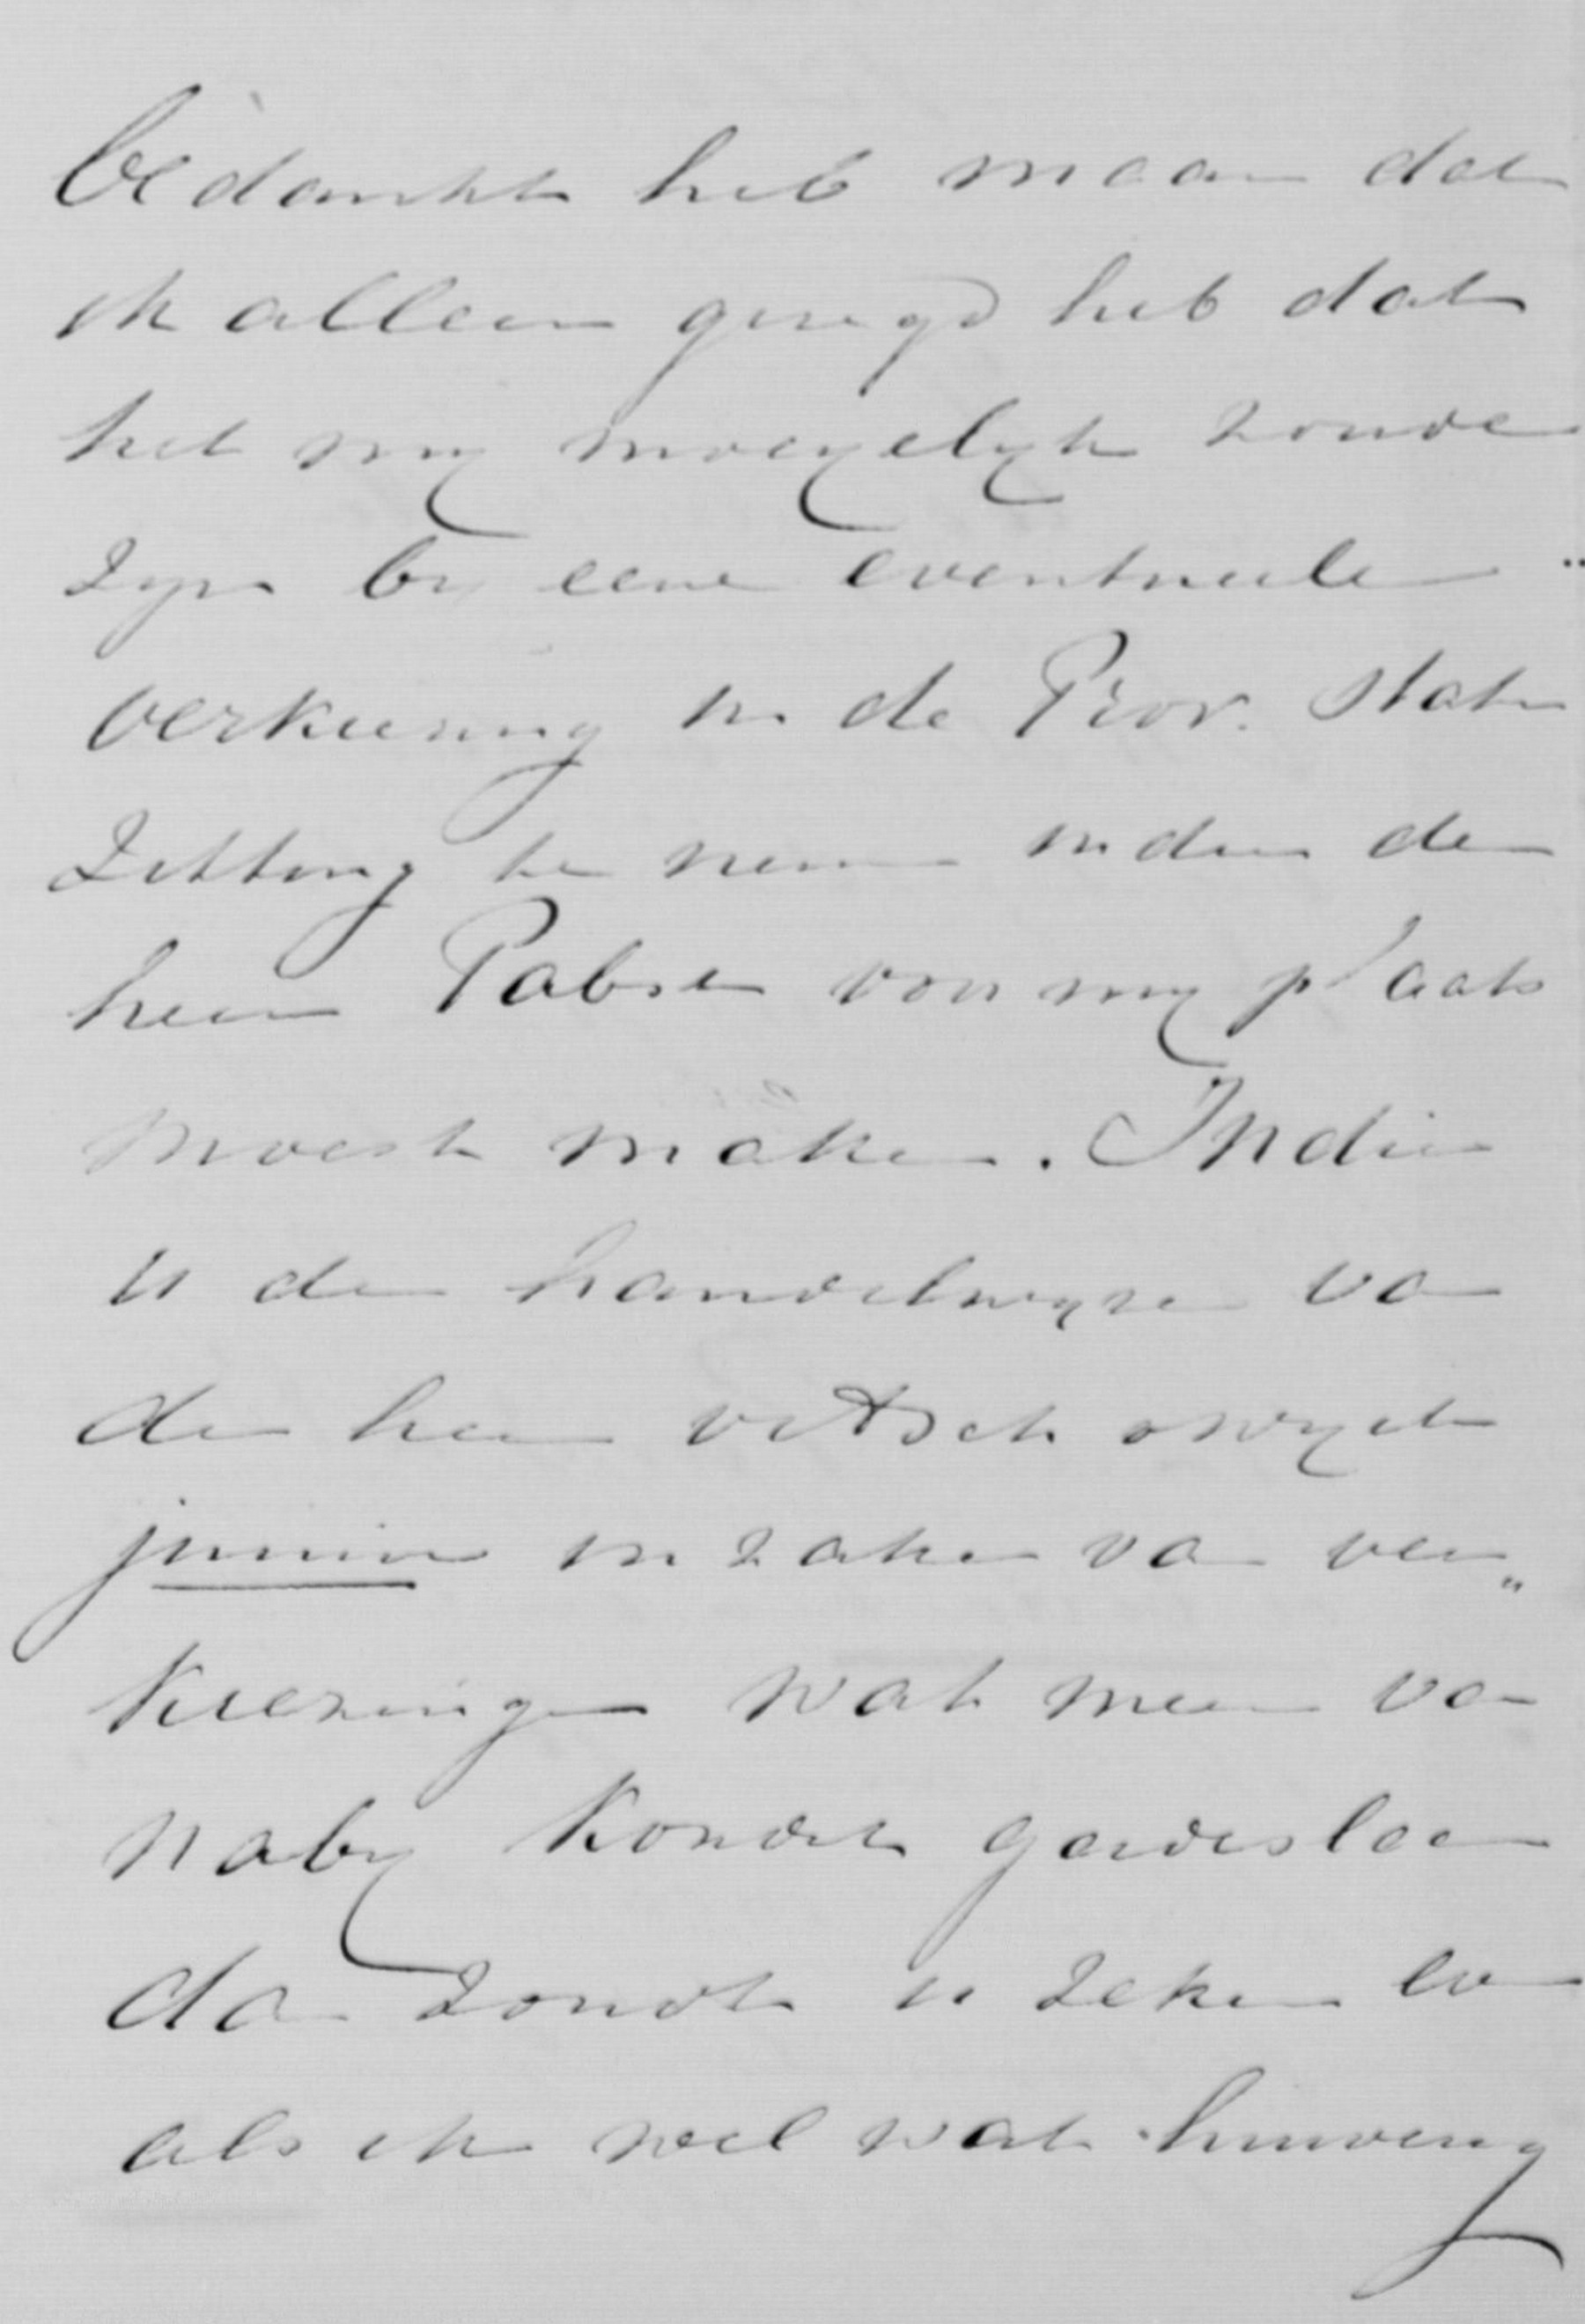 bedankt heb maar dat
ik alleen gezegd heb dat
het my moeyelyk zoude
zyn by eene eventueele
verkiezing in de Prov. Staten
Zitting te nemen indien de
heer Pabst voor my plaats
moest maken. Indien
U de handelwyze van
den heer
junior in zaken van ver„
kiezingen wat meer van
naby kondet gadeslaan
dan zoudt u zeker even
als ik wel wat huiverig